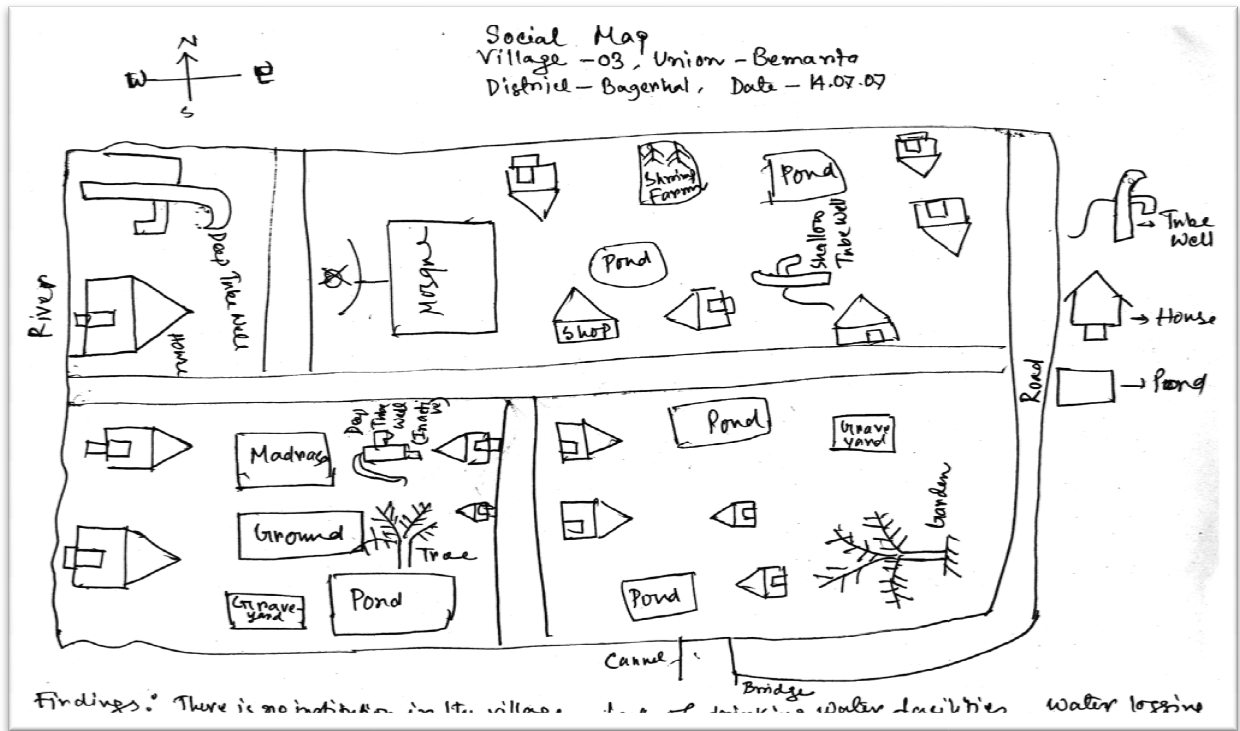 Social Map
Village - 03, Union - Bemarta
District - Bagerhat, Date - 14.07.07
N
W
E
S
River
Deep Tube Well
Home
Mosque
Shrimp
Farm
Pond
Pond
Shallow
Tube Well
Shop
Road
Tube
Well
House
Pond
Madrasa
Deep
Tube
Well
(Inactive)
Ground
Tree
Grave-
yard
Pond
Pond
Grave
yard
Garden
Pond
Cannel
Bridge
Findings: There is no institution in the village of drinking water facilities water logging